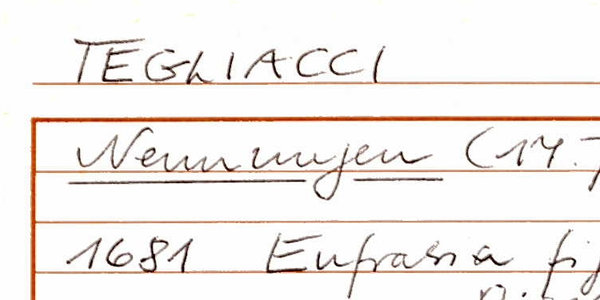 TEGLIACCI
Nennungen (17.
1681 Eufrasia